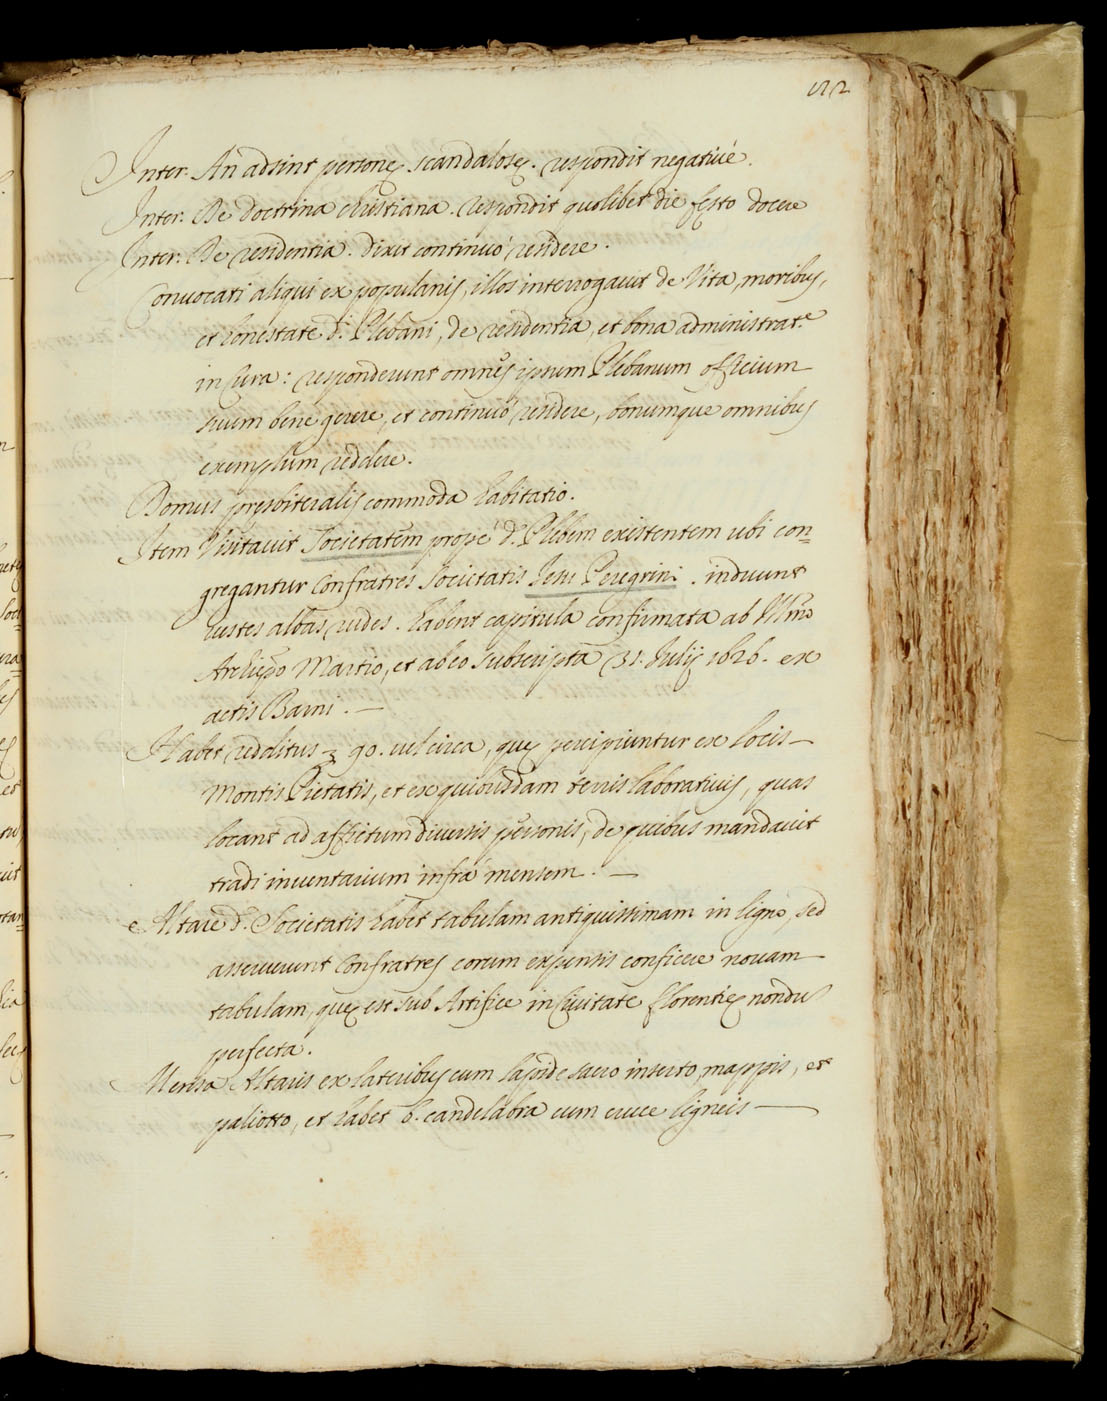 122
Inter. An adsint personę scandalosę. respondit negativé.
Inter. De doctrina christiana. respondit quolibet die festo docere
Inter. De residentia. dixit continuó residere.
Convocati aliqui ex popularis, illos interrogavit de Vita, moribus,
et honestate d.i Plebani, de residentia, et bona administrat.e
in Cura: responderunt omnes ipsum Plebanum officium
suum bene gerere, et continuó residere, bonumque omnibus
exemplum reddere.
Domus presbiteralis commoda habitatio.
Item Visitavit Societatem propé d.m Plebem existentem ubi con=
gregantur Confratres Societatis Jesu Peregrini. induunt
vestes albas rudes. habent capitula confirmata ab Ill.mo
Archiepõ Martio, et ab eo subscripta 31. Julij 1626. ex
actis Barni. —
Habet redditus 90. vel circa, quę percipiuntur ex locis —
Montis Pietatis, et ex quibusdam terris laborativis, quas
locant ad affictum diversis personis, de quibus mandavit
tradi inventarium infrá mensem. —
Altare d. Societatis habet tabulam antiquissimam in ligno, sed
asseruerunt Confratres eorum expensis conficere novam
tabulam, quę est sub Artifice in Civitate Florentię nondũ
perfecta.
Mensa Altaris ex lateribus cum lapide sacro inserto, mappis, et
paliotto, et habet 6. candelabra cum cruce ligneis —